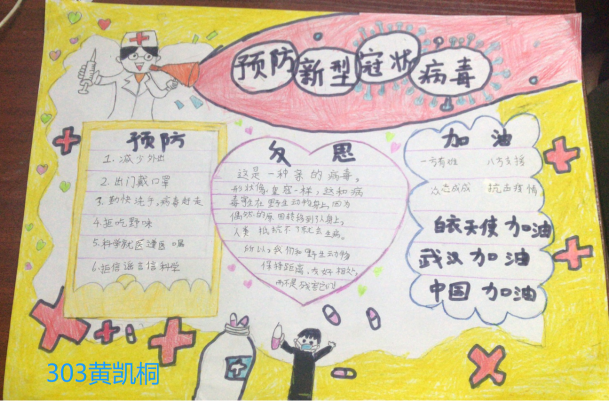 预防新型冠状病毒
预防
1. 减少外出
2. 出门戴口罩
3. 勤快洗手,病毒赶走
4. 拒吃野味
5. 科学就医谨医嘱
6. 拒信谣言信科学
反思
这是一种新的病毒。
形状像皇冠一样,这种病
毒

人类抵抗不了就会生病。
所以,我们和野生动物
保持距离,友好相处,
加油
一方有难 八方支援
众志成成 抗击疫情
白衣天使加油
武汉加油
中国加油
303黄凯桐